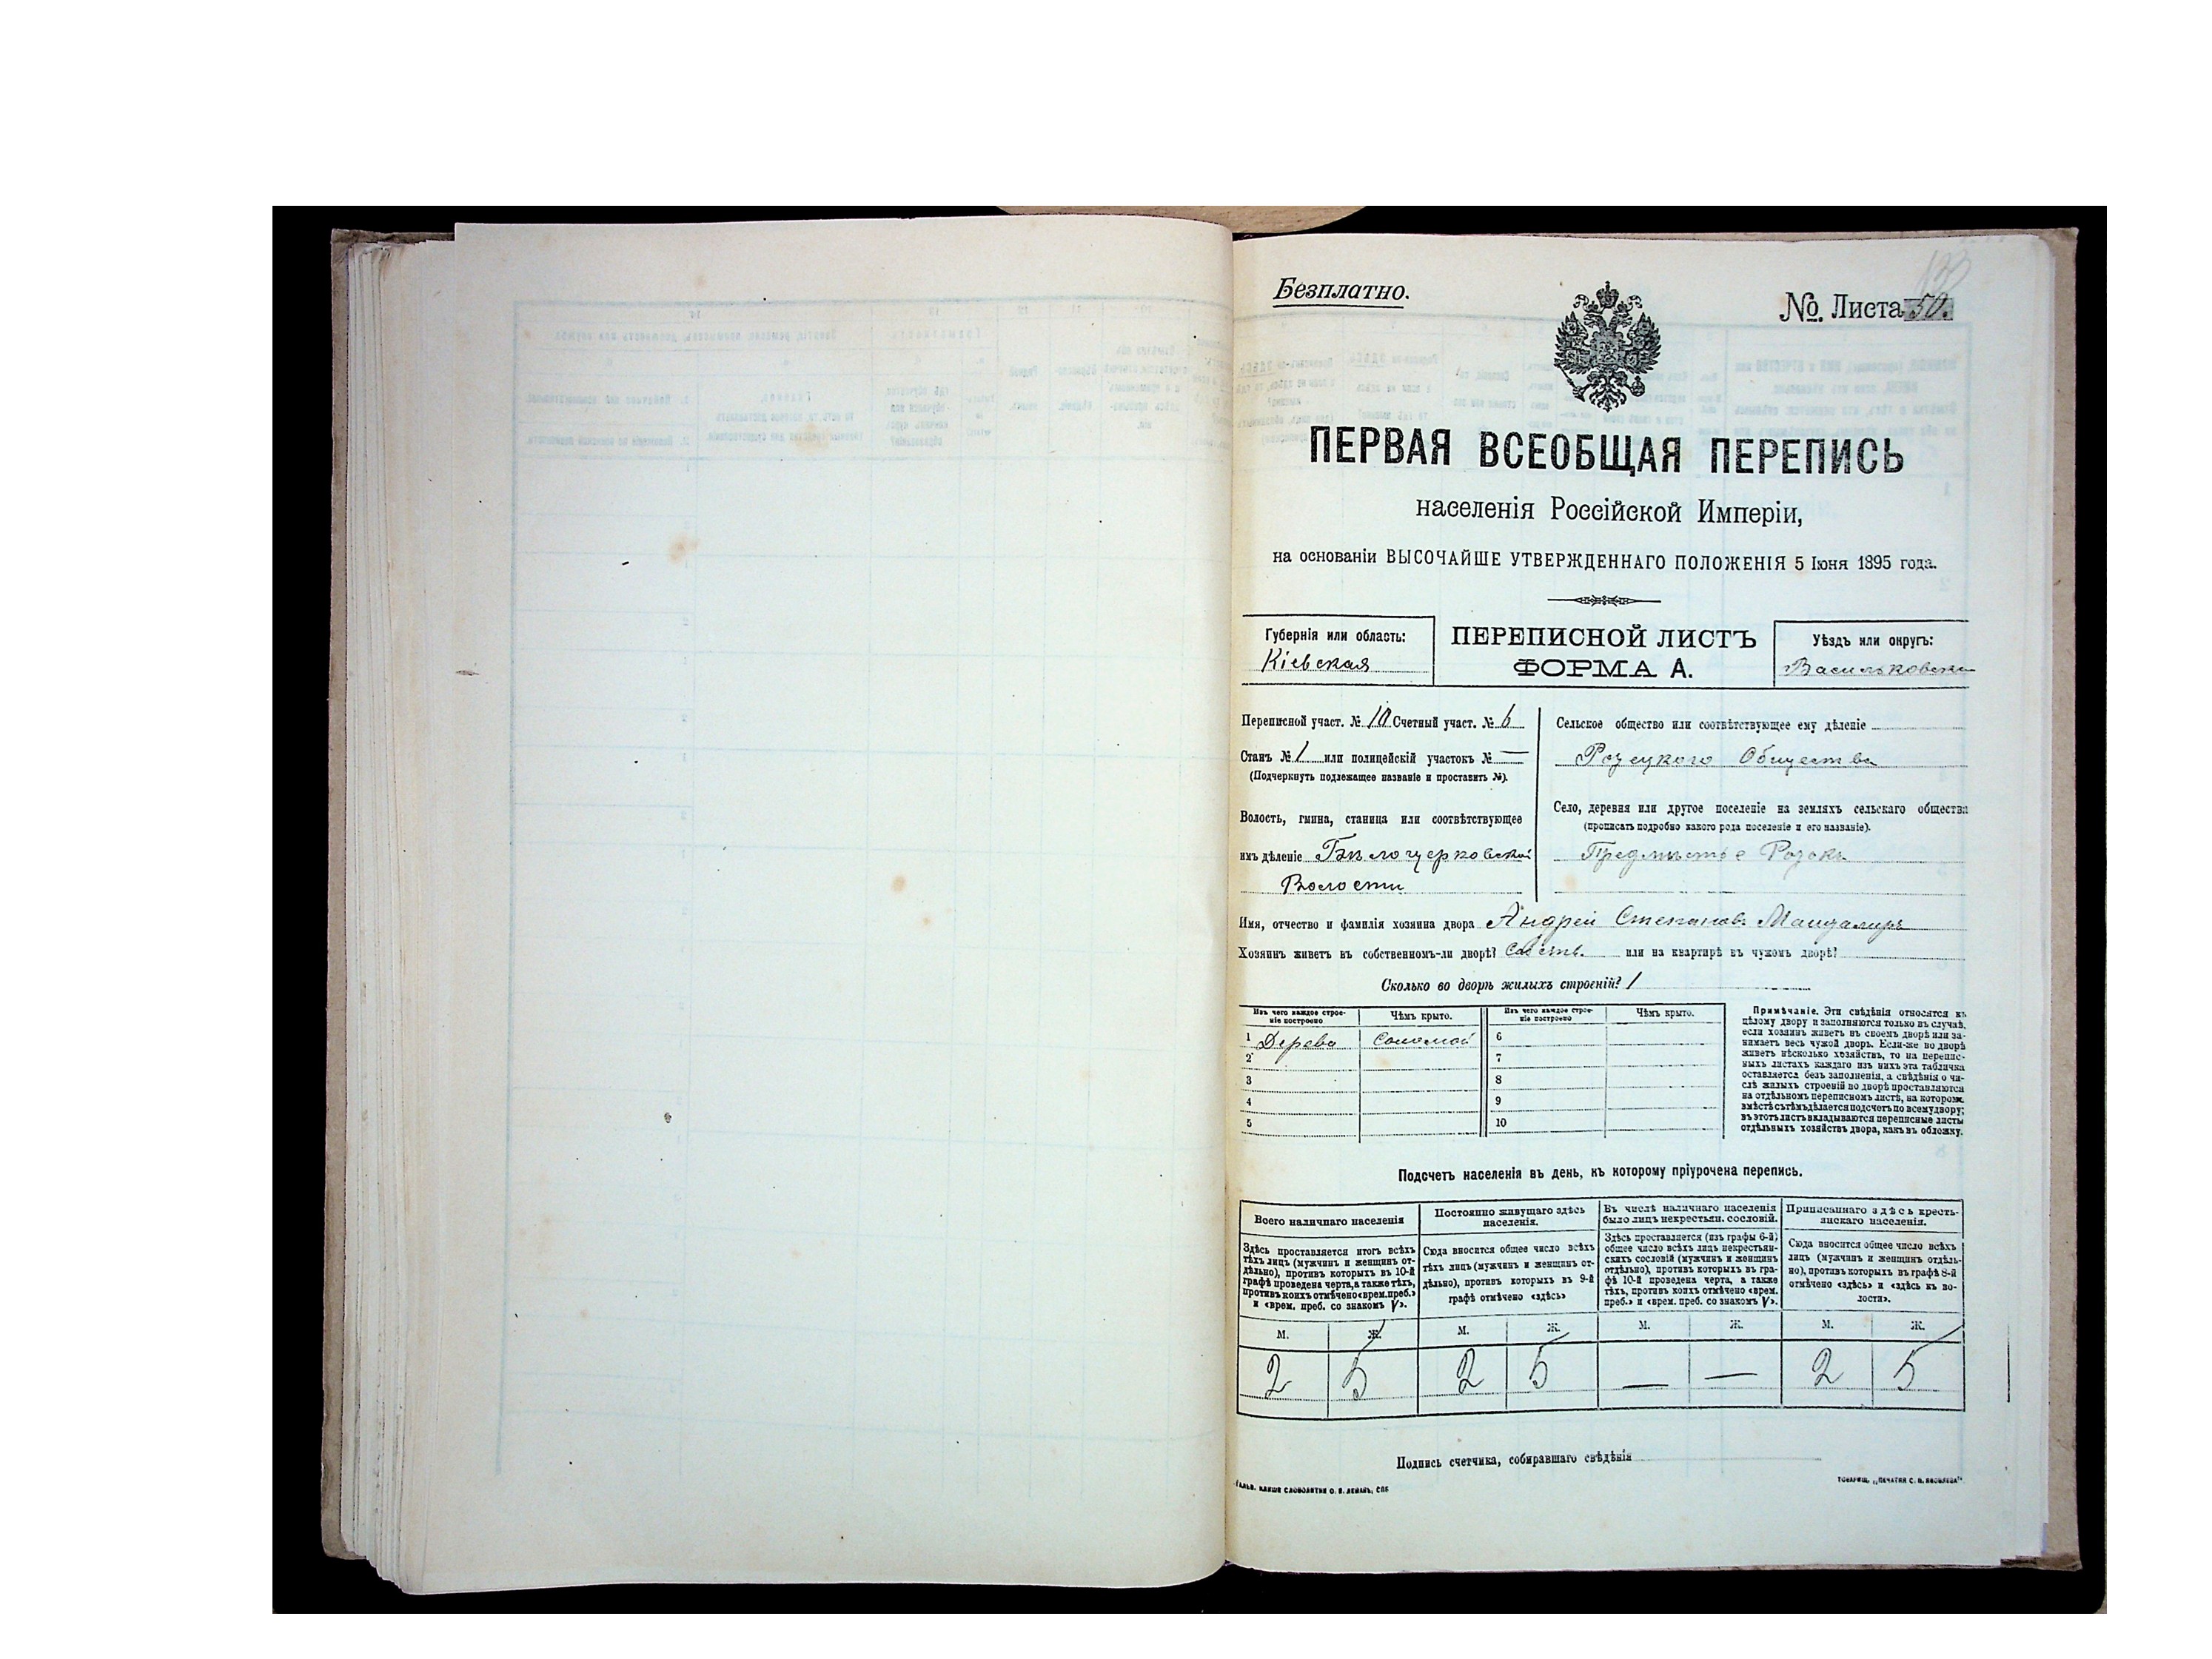 Безплатно.
№ Листа 50.
ПЕРВАЯ ВСЕОБЩАЯ ПЕРЕПИСЬ
населенія Россійской Имперіи,
на основаніи ВЫСОЧАЙШЕ УТВЕРЖДЕННАГО ПОЛОЖЕНІЯ 5 Іюня 1895 года.
Губернія или область:
Кіевская
ПЕРЕПИСНОЙ ЛИСТЪ
ФОРМА А.
Уѣздъ или округъ:
Васильковски
Переписной участ. № 10 Счетный участ. № 6
Станъ № 1 или полицейскій участокъ № —
(Подчеркнуть подлежащее названіе и проставить №).
Волость, гмина, станица или соотвѣтствующее
имъ дѣленіе Бѣлоцерковской
Волости
Сельское общество или соотвѣтствующее ему дѣленіе
Общества
Село, деревня или другое поселеніе на земляхъ сельскаго общества
(прописать подробно какого рода поселеніе и его названіе).
Предмѣстье
Имя, отчество и фамилія хозяина двора Андрей Степановъ
Хозяинъ живетъ въ собственномъ-ли дворѣ? собств. или на квартирѣ въ чужомъ дворѣ?
Сколько во дворѣ жилыхъ строеній? 1
Изъ чего каждое строе-
ніе построено
Чѣмъ крыто.
Изъ чего каждое строе-
ніе построено
Чѣмъ крыто.
1 Дерева Соломой 6
2 7
3 8
4 9
5 10
Примѣчаніе. Эти свѣдѣнія относятся къ
цѣлому двору и заполняются только въ случаѣ,
если хозяинъ живетъ въ своемъ дворѣ или за-
нимаетъ весь чужой дворъ. Если-же во дворѣ
живетъ нѣсколько хозяйствъ, то на перепис-
ныхъ листахъ каждаго изъ нихъ эта табличка
оставляется безъ заполненія, а свѣдѣнія о чи-
слѣ жилыхъ строеній во дворѣ проставляются
на отдѣльномъ переписномъ листѣ, на которомъ
вмѣстѣ съ тѣмъ дѣлается подсчетъ по всему двору;
въ этотъ листъ вкладываются переписные листы
отдѣльныхъ хозяйствъ двора, какъ въ обложку.
Подсчетъ населенія въ день, къ которому пріурочена перепись.
Всего наличнаго населенія
Здѣсь проставляется итогъ всѣхъ
тѣхъ лицъ (мужчинъ и женщинъ от-
дѣльно), противъ которыхъ въ 10-й
графѣ проведена черта, а также тѣхъ,
противъ коихъ отмѣчено «врем. преб.»
и «врем. преб. со знакомъ V».
Постоянно живущаго здѣсь
населенія.
Сюда вносится общее число всѣхъ
тѣхъ лицъ (мужчинъ и женщинъ от-
дѣльно), противъ которыхъ въ 9-й
графѣ отмѣчено «здѣсь»
Въ числѣ наличнаго населенія
было лицъ некрестьян. сословій.
Здѣсь проставляется (изъ графы 6-й)
общее число всѣхъ лицъ некрестьян-
скихъ сословій (мужчинъ и женщинъ
отдѣльно), противъ которыхъ въ гра-
фѣ 10-й проведена черта, а также
тѣхъ, противъ коихъ отмѣчено «врем.
преб.» и «врем. преб. со знакомъ V».
Приписаннаго здѣсь кресть-
янскаго населенія.
Сюда вносится общее число всѣхъ
лицъ (мужчинъ и женщинъ отдѣль-
но), противъ которыхъ въ графѣ 8-й
отмѣчено «здѣсь» и «здѣсь къ во-
лости».
М. Ж. М. Ж. М. Ж. М. Ж.
2 5 2 5 — — 2 5
Подпись счетчика, собиравшаго свѣдѣнія
ГАЛЬВ. КЛИШЕ СЛОВОЛИТНИ О. И. ЛЕМАНЪ, СПБ
ТОВАРИЩ. „ПЕЧАТНЯ С. П. ЯКОВЛЕВА"